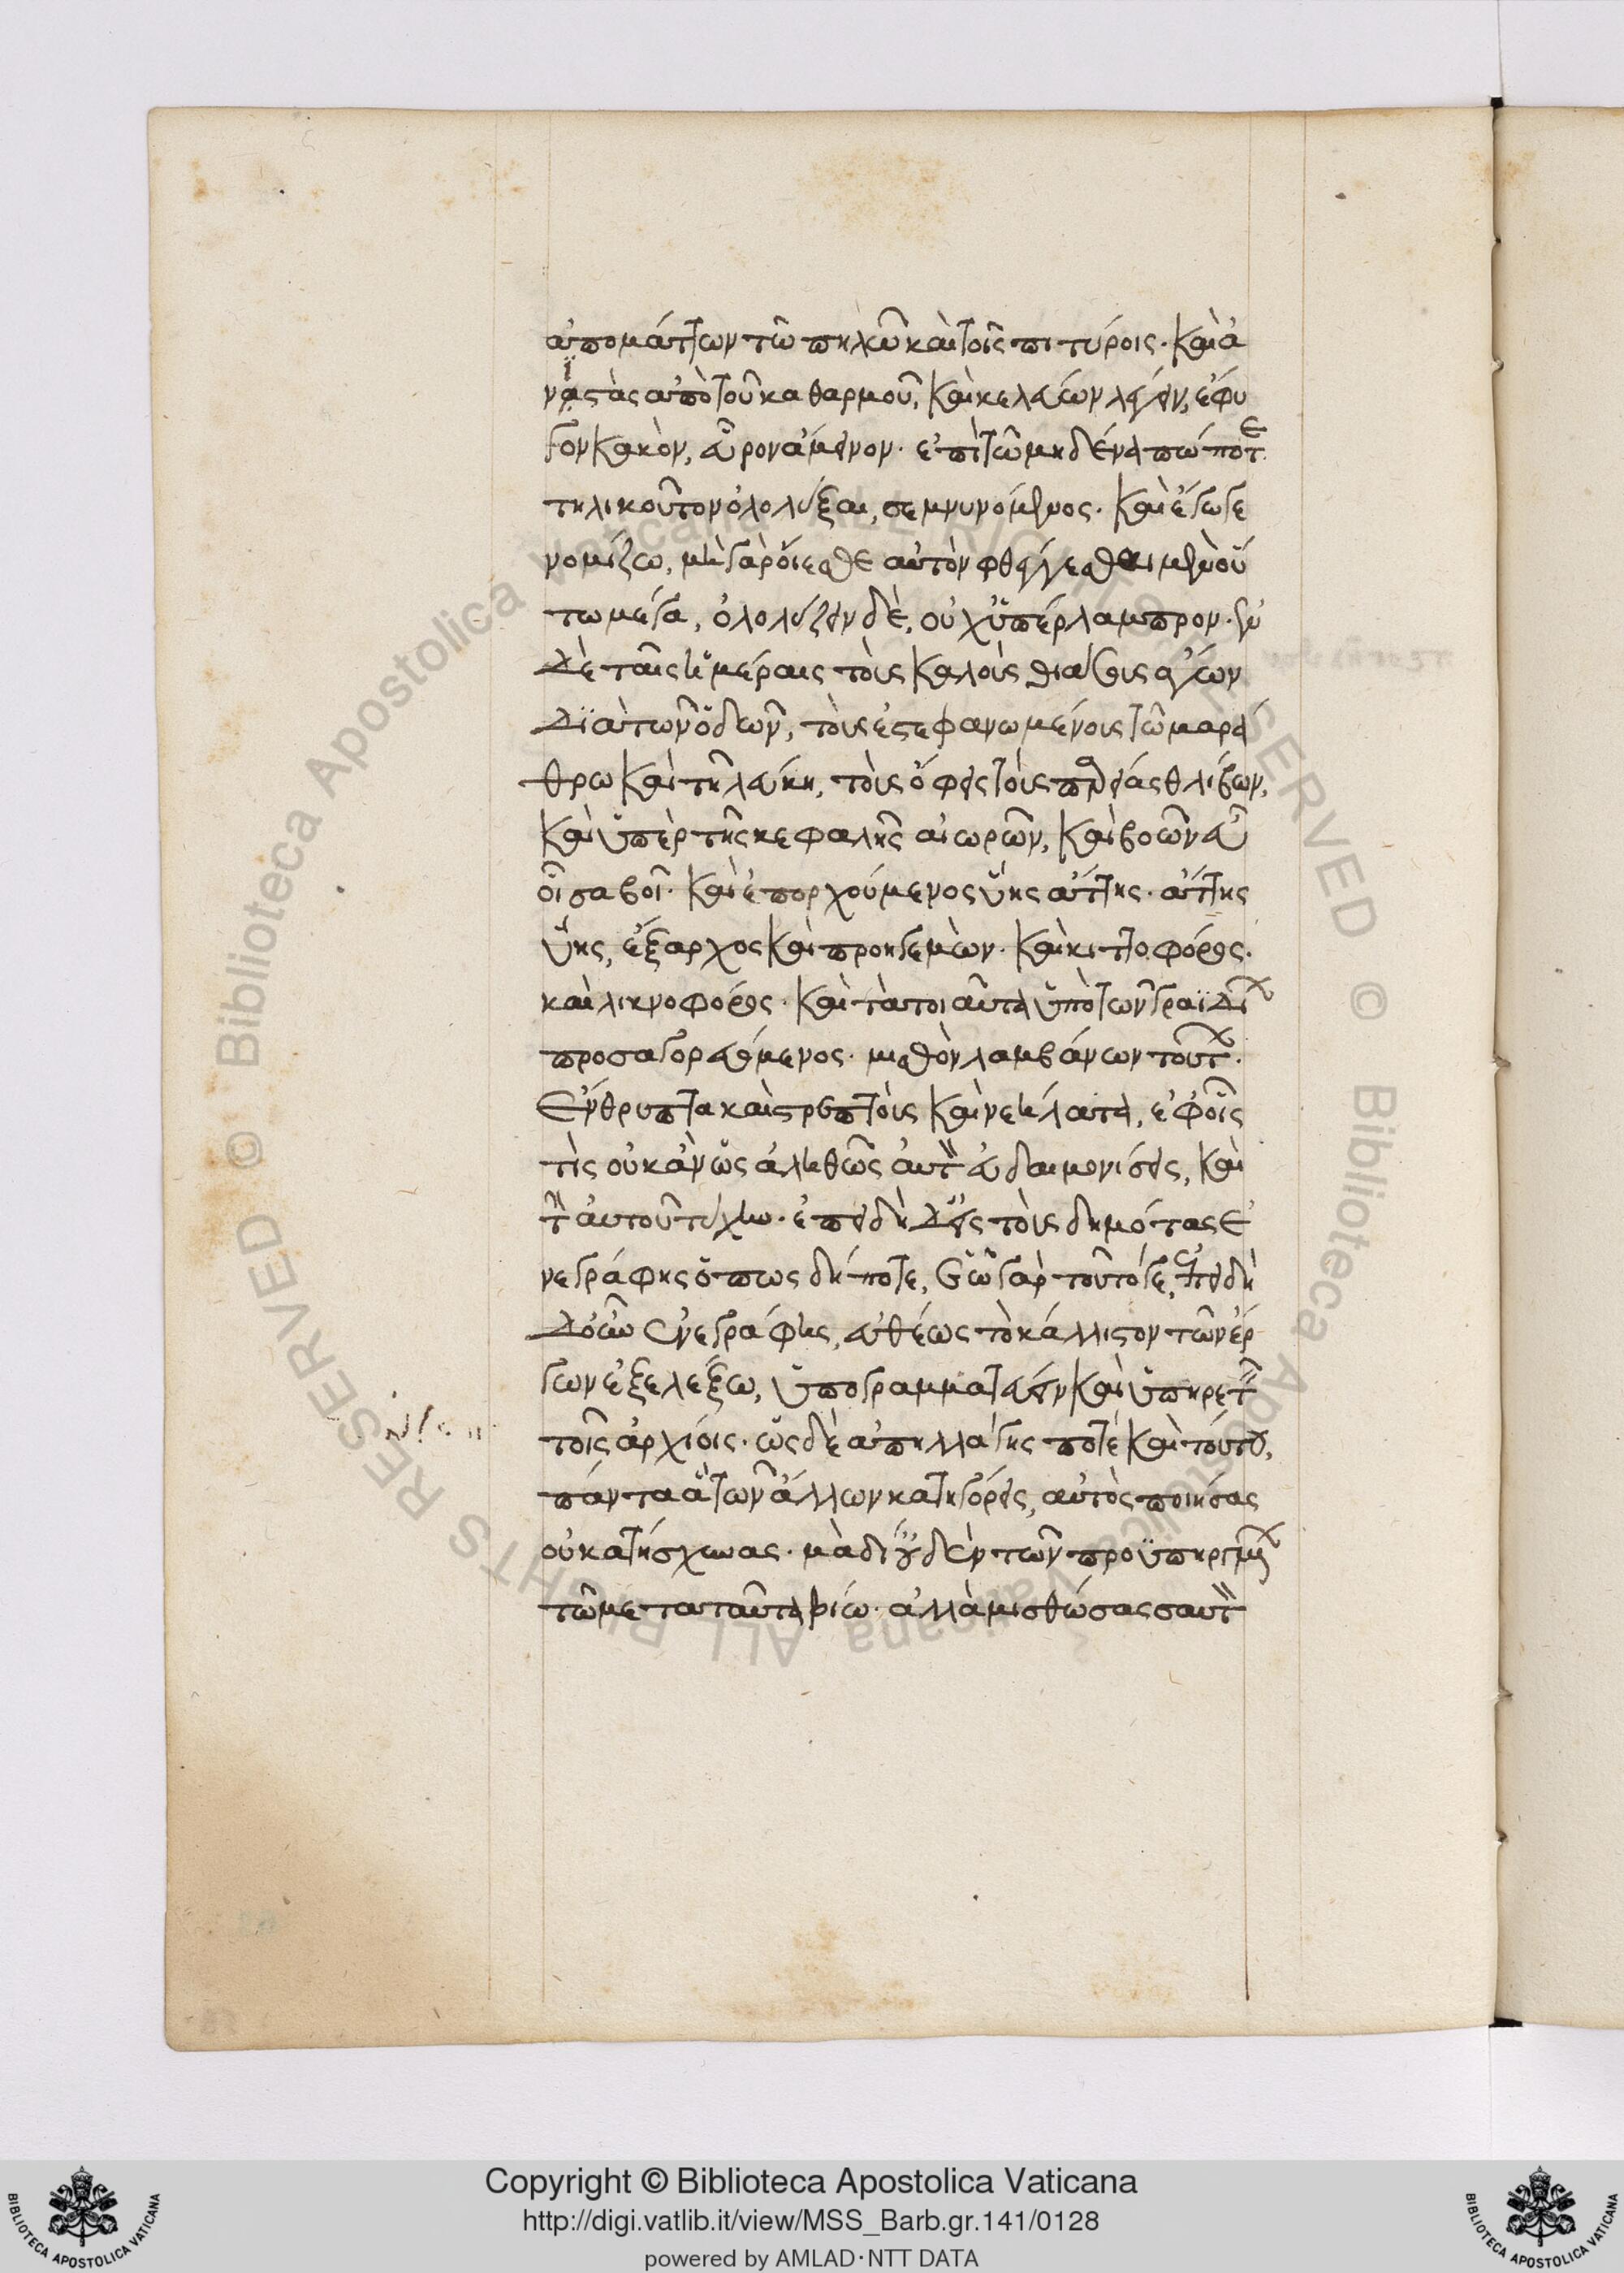 ἀπομάττων τῶ πηλῶ καὶ τοῖς πιτύροις. καὶ ἀ
νιστὰς ἀπὸ τοῦ καθαρμοῦ, καὶ κελεύων λέγειν, ἔφυ
γον κακὸν, εὗρον ἄμεινον. ἐπὶ τῶ μηδένα πώποτε
τηλικοῦτον ὀλολύξαι, σεμνυνόμενος. καὶ ἔγωγε
νομίζω, μὴ γὰρ οἴεσθε αὐτὸν φθέγγεσθαι μὲν οὕ
τω μέγα, ὀλολύζειν δὲ, οὐχ ὑπέρλαμπρον. ἐν
δὲ ταῖς ἡμέραις τοὺς καλοὺς θιάσους ἄγων
διὰ τῶν ὁδῶν, τοὺς ἐστεφανωμένους τῶ μαρά
θρω καὶ τῆ λεύκη, τοὺς ὄφεις τοὺς παρείας θλίβων,
καὶ ὑπὲρ τῆς κεφαλῆς αἰωρῶν, καὶ βοῶν εὐ
οἷ σαβοῖ. καὶ ἐπορχούμενος ὕης ἄττης. ἄττης
ὕης, ἔξαρχος καὶ προηγεμὼν. καὶ κιττοφόρος.
καὶ λικνοφόρος. καὶ τὰ τοιαῦτα ὑπὸ τῶν γραϊδίων
προσαγορευόμενος. μισθὸν λαμβάνων τούτων.
ἔνθρυπτα καὶ στρεπτοὺς καὶ νεήλατα, ἐφ' οἷς
τίς οὐκ ἂν ὡς ἀληθῶς αὑτὸν εὐδαιμονίσειε, καὶ
τὴν αὑτοῦ τύχην. ἐπειδὴ δ' εἰς τοὺς δημότας ἐ
νεγράφης ὅπως δήποτε, ἐῶ γὰρ τοῦτό γε, ἐπειδὴ
δ' οὖν ἐνεγράφης, εὐθέως τὸ κάλλιστον τῶν ἔρ
γων ἐξελέξω, ὑπογραμματεύειν καὶ ὑπηρετεῖν
τοῖς ἀρχιδίοις. ὡς δὲ ἀπηλλάγης ποτὲ καὶ τούτου,
πάντα ἃ τῶν ἄλλων κατηγορεῖς, αὐτὸς ποιήσας
οὐ κατήσχυνας. μὰ δί' οὐδὲν τῶν προϋπηργμένων
τῶ μετὰ ταῦτα βίω. ἀλλὰ μισθώσας σαυτὸν
Copyright © Biblioteca Apostolica Vaticana
http://digi.vatlib.it/view/MSS_Barb.gr.141/0128
powered by AMLAD·NTT DATA